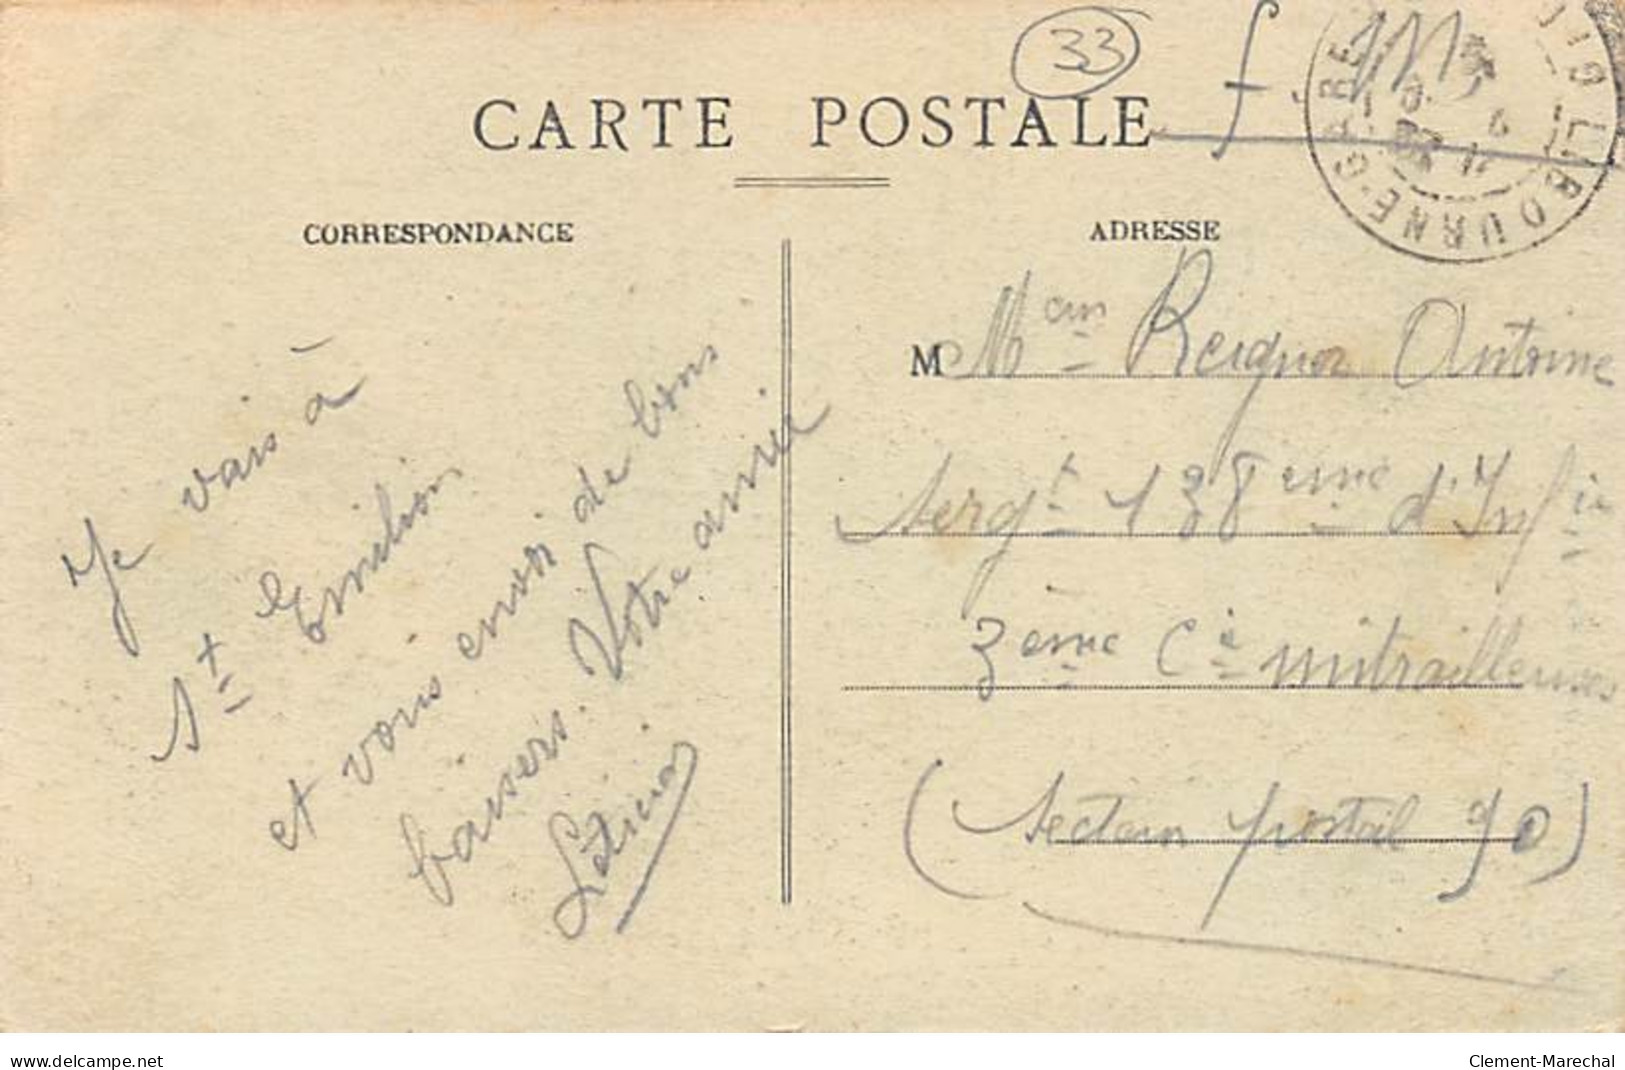 33
f
CARTE POSTALE
LIBOURNE-GARE
CORRESPONDANCE
ADRESSE
Je vais à
St Emilion
et vous envoi de bons
baisers. Votre amie
M
Antoine
Sergt 138eme d'Infie
3eme Cie mitrailleuses
(Secteur postal 90)
www.delcampe.net
Clement-Marechal